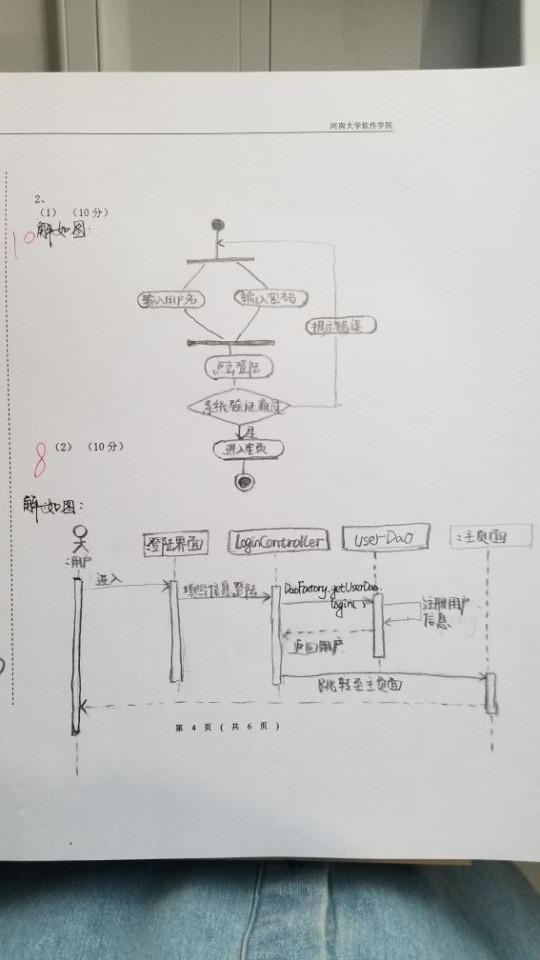 河南大学软件学院
2、
(1) (10分)
10
解如图:
输入用户名
输入密码
提示错误
点击登陆
系统验证通过
是
进入主页
8
(2) (10分)
解如图:
:用户
:登陆界面
LoginController
UserDao
:主页面
进入
填写信息登陆
DaoFactory.getUserDao.
login()
注册用户
信息
返回用户
跳转至主页面
第 4 页 ( 共 6 页 )